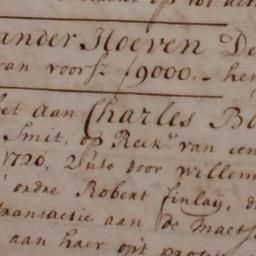 op
ander Hoeven De
van voorsz. f 9000.- hem
et aan Charles Ba
Smit, op Reekg van een
1720, door willem
ordre Robert Finlaij, d
ransactie aan de Maets
aan haer op't